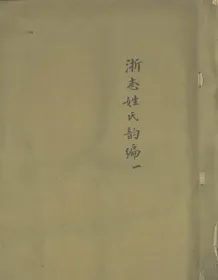 浙志姓氏韵编一